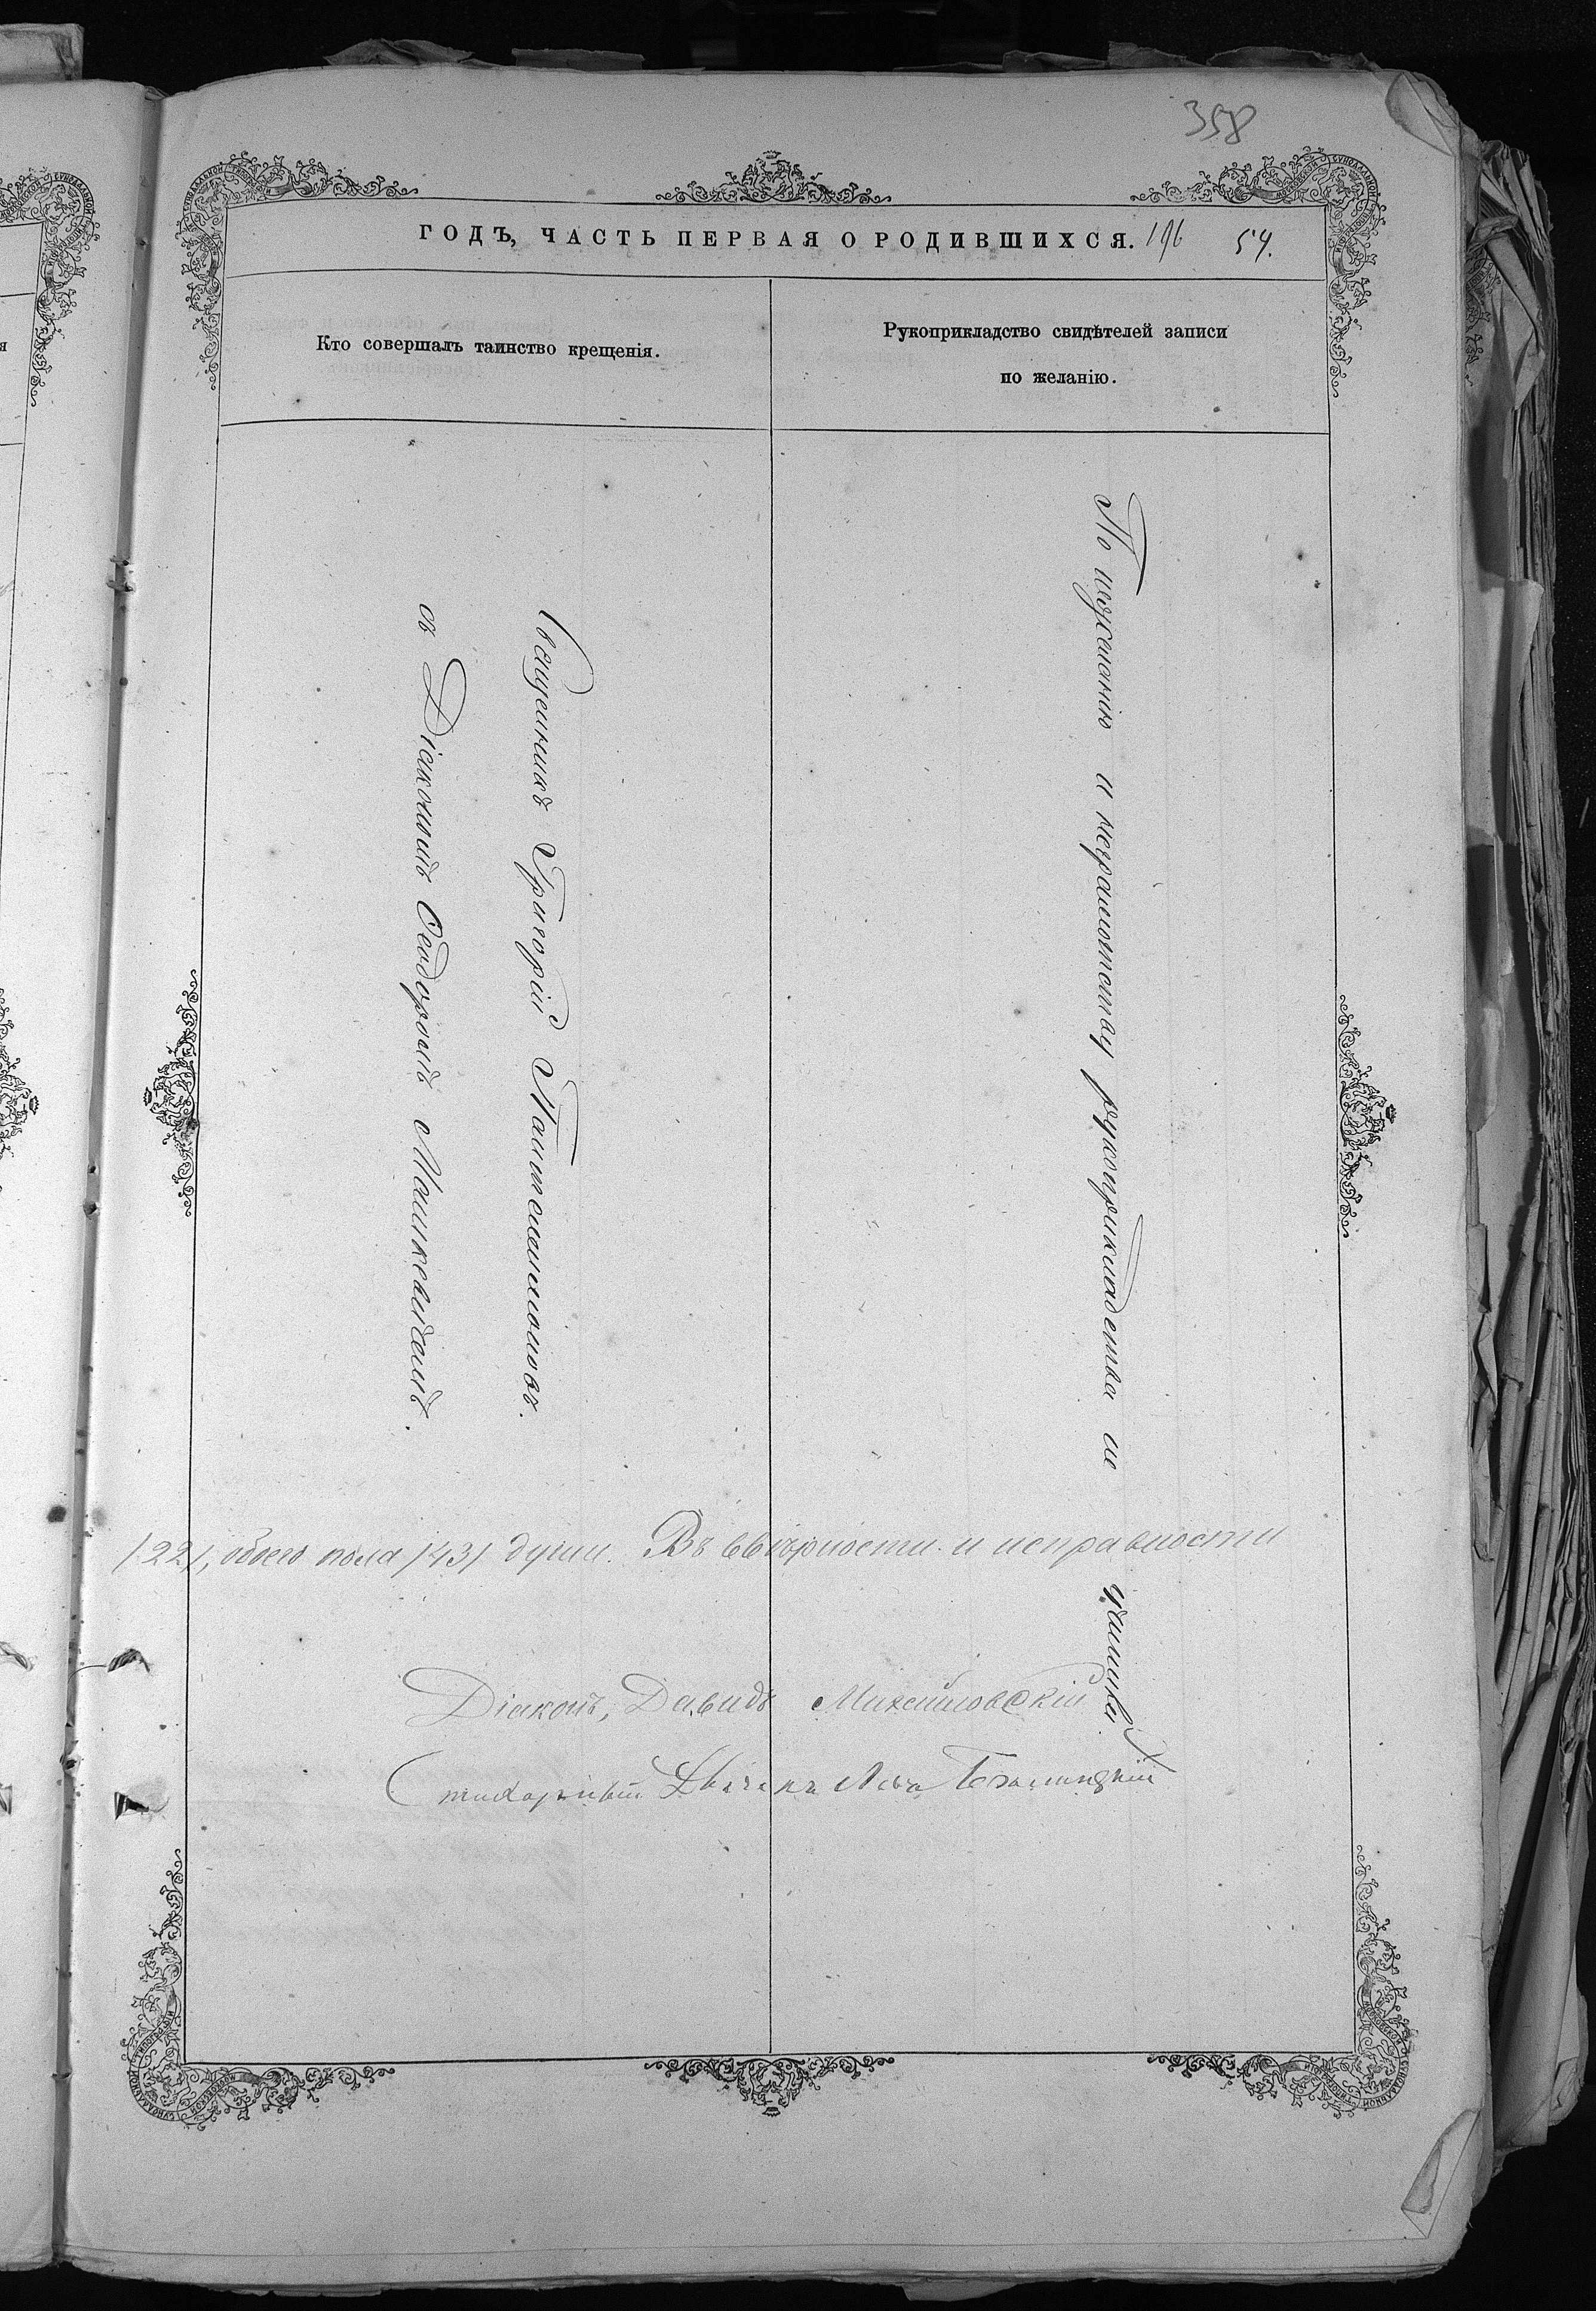 358
ГОДЪ, ЧАСТЬ ПЕРВАЯ О РОДИВШИХСЯ. 196 54.
Кто совершалъ таинство крещенія.
Рукоприкладство свидѣтелей записи
по желанію.
Священникъ Григорій Пантелимоновъ.
съ Діакономъ Ѳеодоромъ Машкевичемъ.
По нежеланію и неграмотству рукоприкладства не
(22), обоего пола (43) души. Въ вѣрности и исправности
Діаконъ, Давидъ Михайловскій
Стихарный Дьячекъ Лева